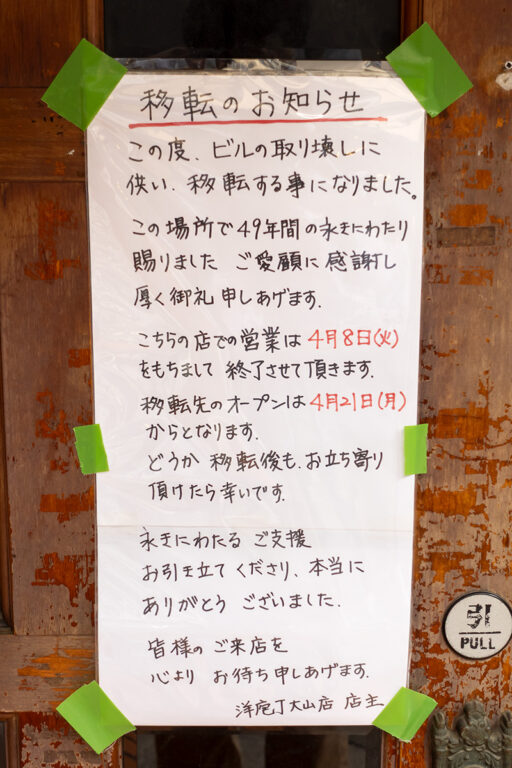 移転のお知らせ
この度、ビルの取り壊しに
供い、移転する事になりました。
この場所で49年間の永きにわたり
賜りました ご愛顧に感謝し
厚く御礼申しあげます。
こちらの店での営業は4月8日(火)
をもちまして終了させて頂きます。
移転先のオープンは4月21日(月)
からとなります。
どうか 移転後も、お立ち寄り
頂けたら幸いです。
永きにわたる ご支援
お引き立てくださり、本当に
ありがとう ございました。
皆様の ご来店を
心より お待ち申しあげます。
洋庖丁大山店 店主
引
PULL